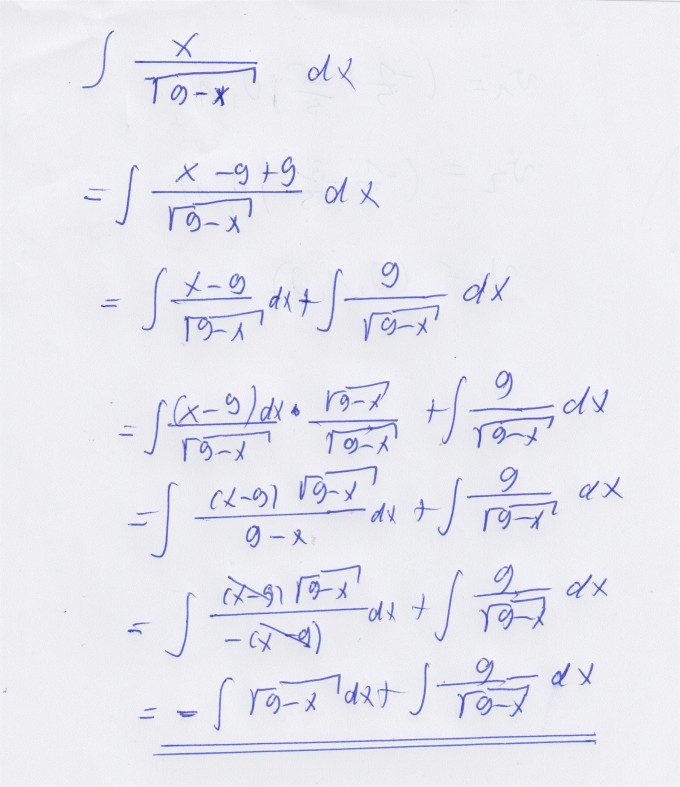 ∫ x/√(9-x) dx
= ∫ (x-9+9)/√(9-x) dx
= ∫ (x-9)/√(9-x) dx + ∫ 9/√(9-x) dx
= ∫ (x-9)dx/√(9-x) · √(9-x)/√(9-x) + ∫ 9/√(9-x) dx
= ∫ (x-9)√(9-x)/(9-x) dx + ∫ 9/√(9-x) dx
= ∫ (x-9)√(9-x)/-(x-9) dx + ∫ 9/√(9-x) dx
= - ∫ √(9-x) dx + ∫ 9/√(9-x) dx